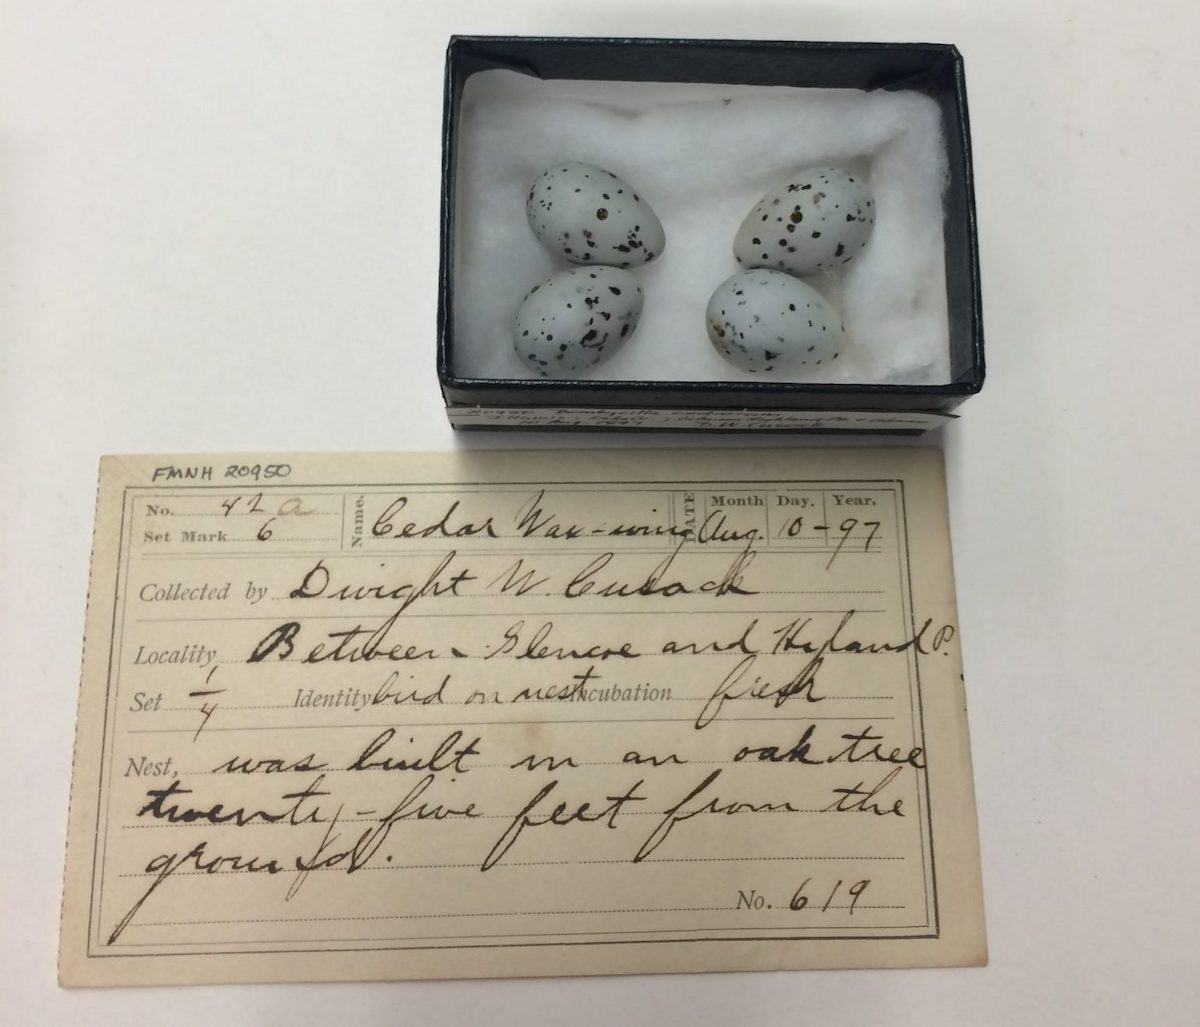 20950 Bombycilla cedrorum
Illinois; ; between Highland Pk + Glencoe
10 Aug. 1897 D.W. Cusack
FMNH 20950
No. 42 a Name. Cedar Wax-wing DATE Month Day. Year.
Set Mark 6 Aug. 10-97
Collected by Dwight W. Cusack
Locality Between Glencoe and Hyland P.
Set 1/4 Identity bird on nest Incubation fresh
Nest, was built in an oak tree
twenty-five feet from the
ground.
No. 619